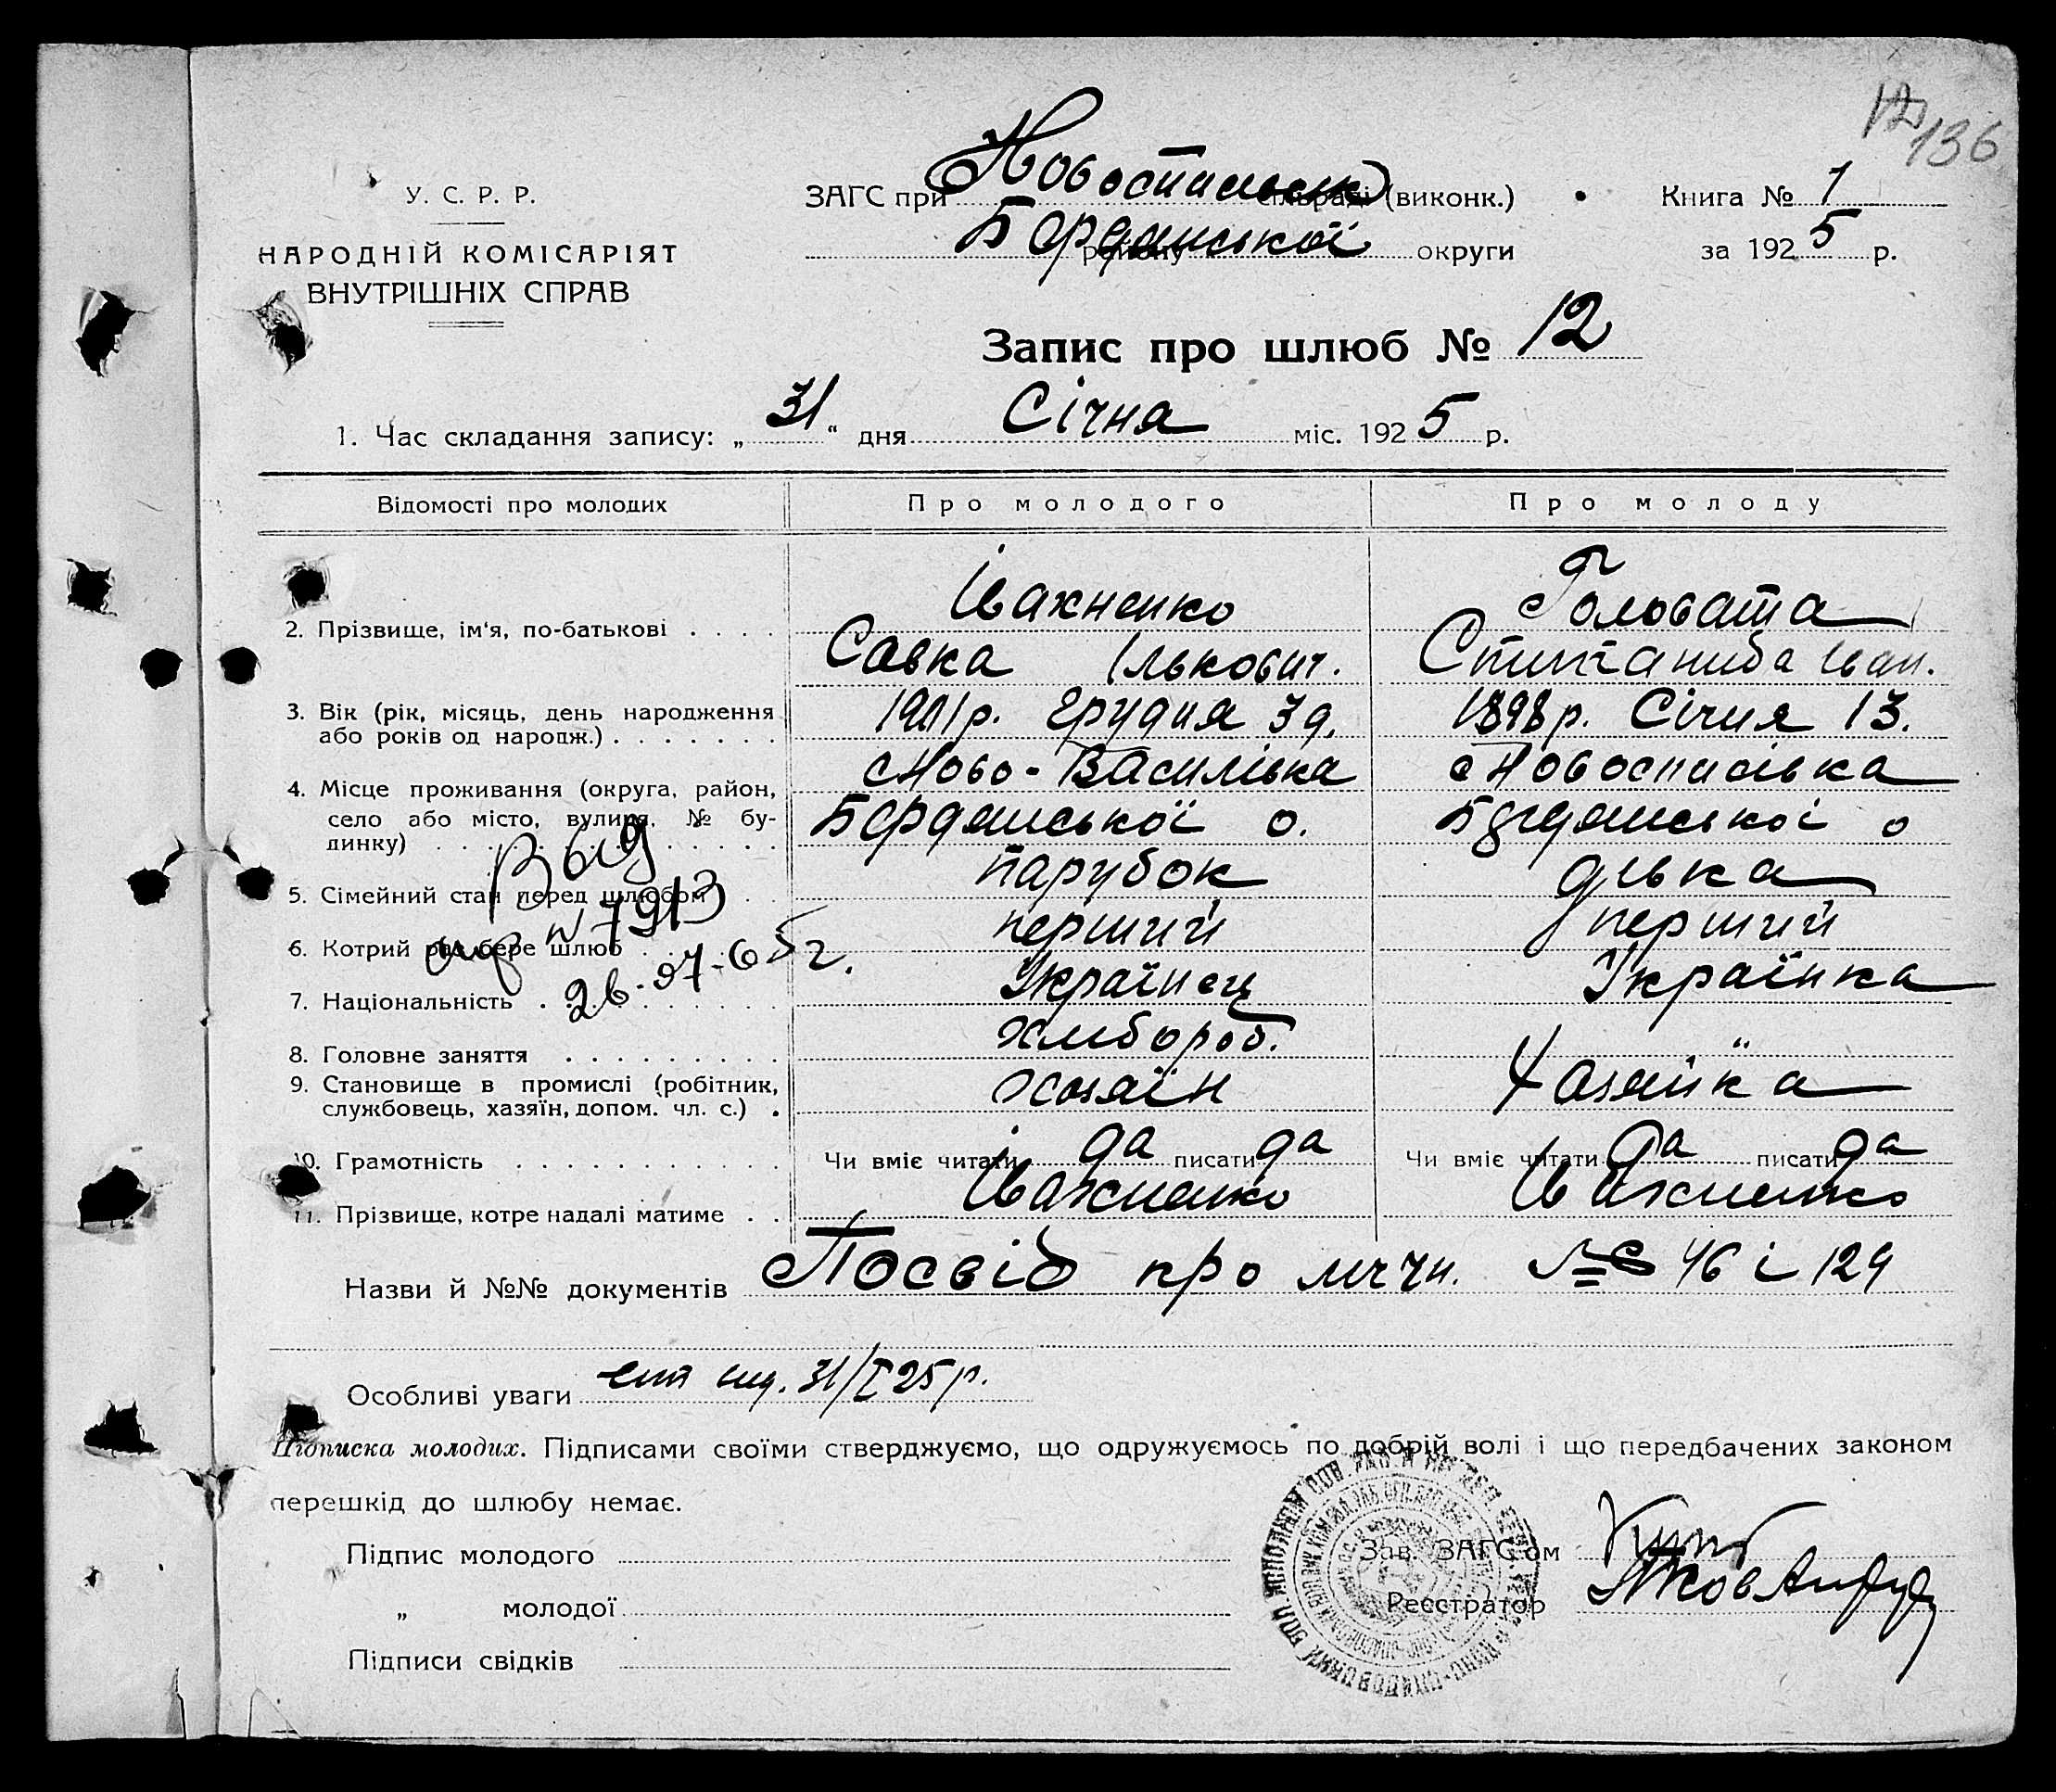 12 136
У. С. Р. Р.
НАРОДНІЙ КОМІСАРІЯТ
ВНУТРІШНІХ СПРАВ
ЗАГС при Новоспаськ сільраді (виконк.)
Бердянської району округи
Книга № 1
за 1925 р.
Запис про шлюб № 12
1. Час складання запису: „31“ дня Січня міс. 1925 р.
Відомості про молодих Про молодого Про молоду
2. Прізвище, ім‘я, по-батькові . . . . Івахненко Головата
Савка Ількович. Іван.
3. Вік (рік, місяць, день народження або років од народж.) . . . . . . . 1901 р. Грудня 3 д. 1898 р. Січня 13.
4. Місце проживання (округа, район, село або місто, вулиця, № будинку) . . . Ново-Василівка Бердянської о. Новоспасівка Бердянської о
5. Сімейний стан перед шлюбом . . парубок дівка
6. Котрий раз бере шлюб . . . перший перший
7. Національність . . . . Українець Українка
8. Головне заняття . . . . . . . . . хлібороб.
9. Становище в промислі (робітник, службовець, хазяїн, допом. чл. с.) . хозяїн Хазяйка
10. Грамотність . . . . . . . . . . . Чи вміє читати да писати да Чи вміє читати да писати да
11. Прізвище, котре надалі матиме . . Івахненко Івахненко
Выд
№ 7913
26-07-65 г.
Назви й №№ документів Посвід про личн. № 46 і 129
Особливі уваги 31/I 25 р.
Підписка молодих. Підписами своїми стверджуємо, що одружуємось по добрій волі і що передбачених законом
перешкід до шлюбу немає.
Підпис молодого
Зав. ЗАГС‘ом
„ молодої
Реєстратор
Підписи свідків